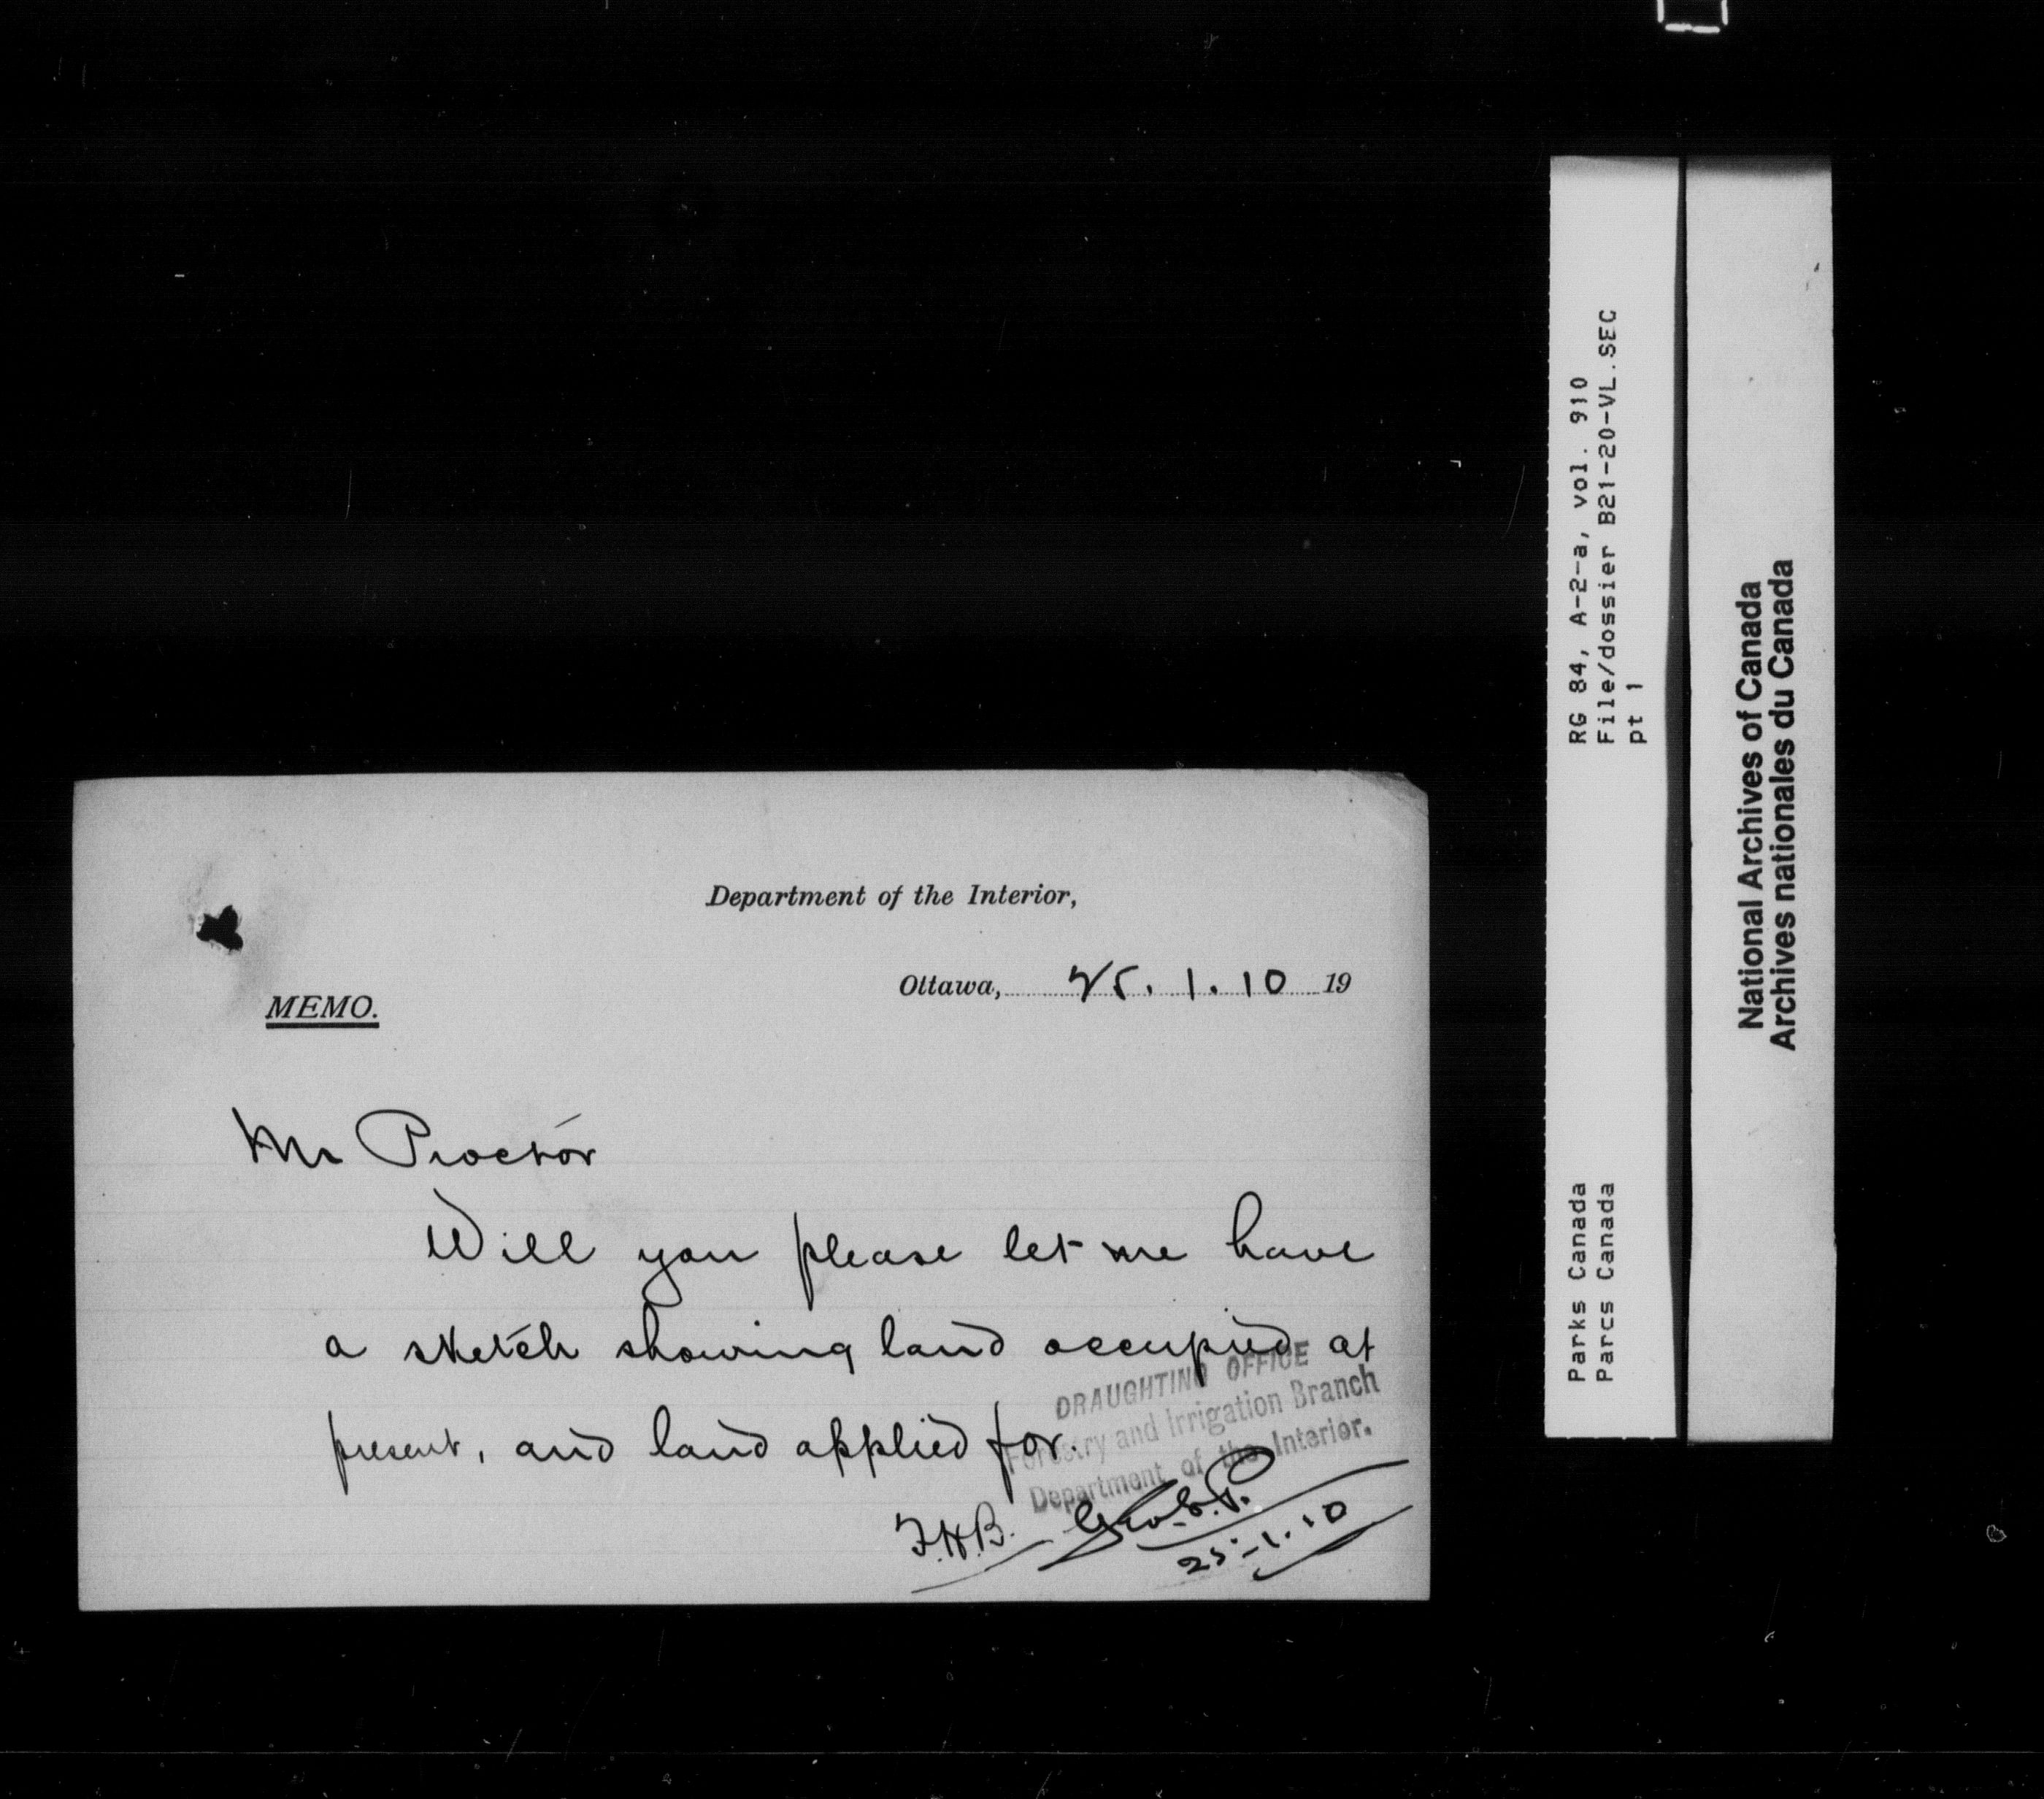 Department of the Interior,
Ottawa, 25.1.10 19
MEMO.
Mr Proctor
Will you please let me have
a sketch showing land occupied at
present, and land applied for.
DRAUGHTING OFFICE
Forestry and Irrigation Branch
Department of the Interior.
F.H.B. Geo.E.P.
25-1.10
RG 84, A-2-a, vol. 910
File/dossier B21-20-VL.SEC
pt 1
Parks Canada
Parcs Canada
National Archives of Canada
Archives nationales du Canada